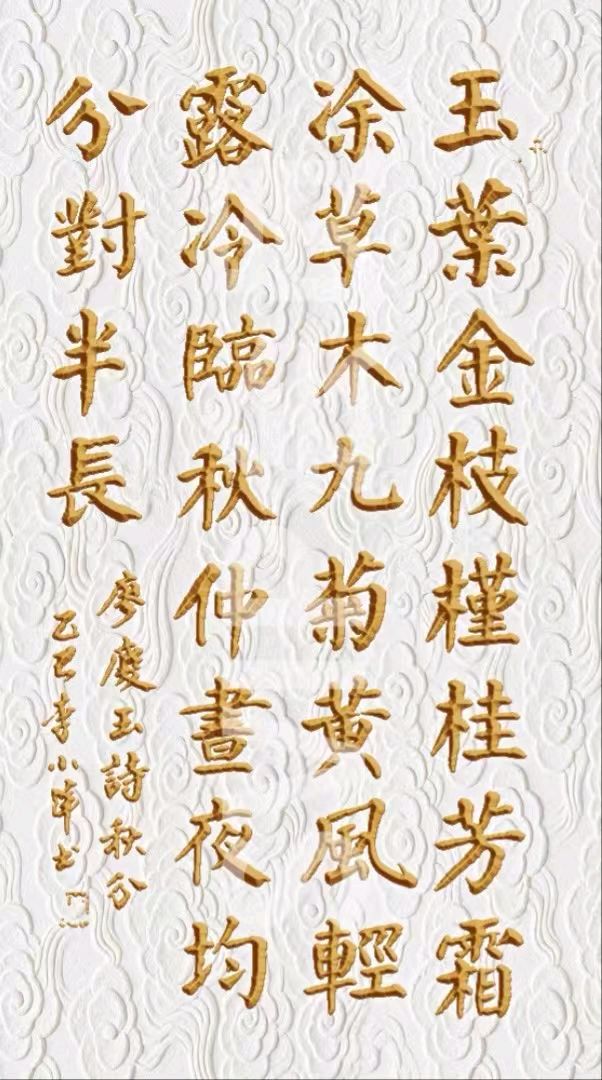 玉葉金枝槿桂芳霜
涂草木九菊黄風輕
露冷臨秋仲晝夜均
分對半長
廖慶玉詩秋分
乙巳李小洋书